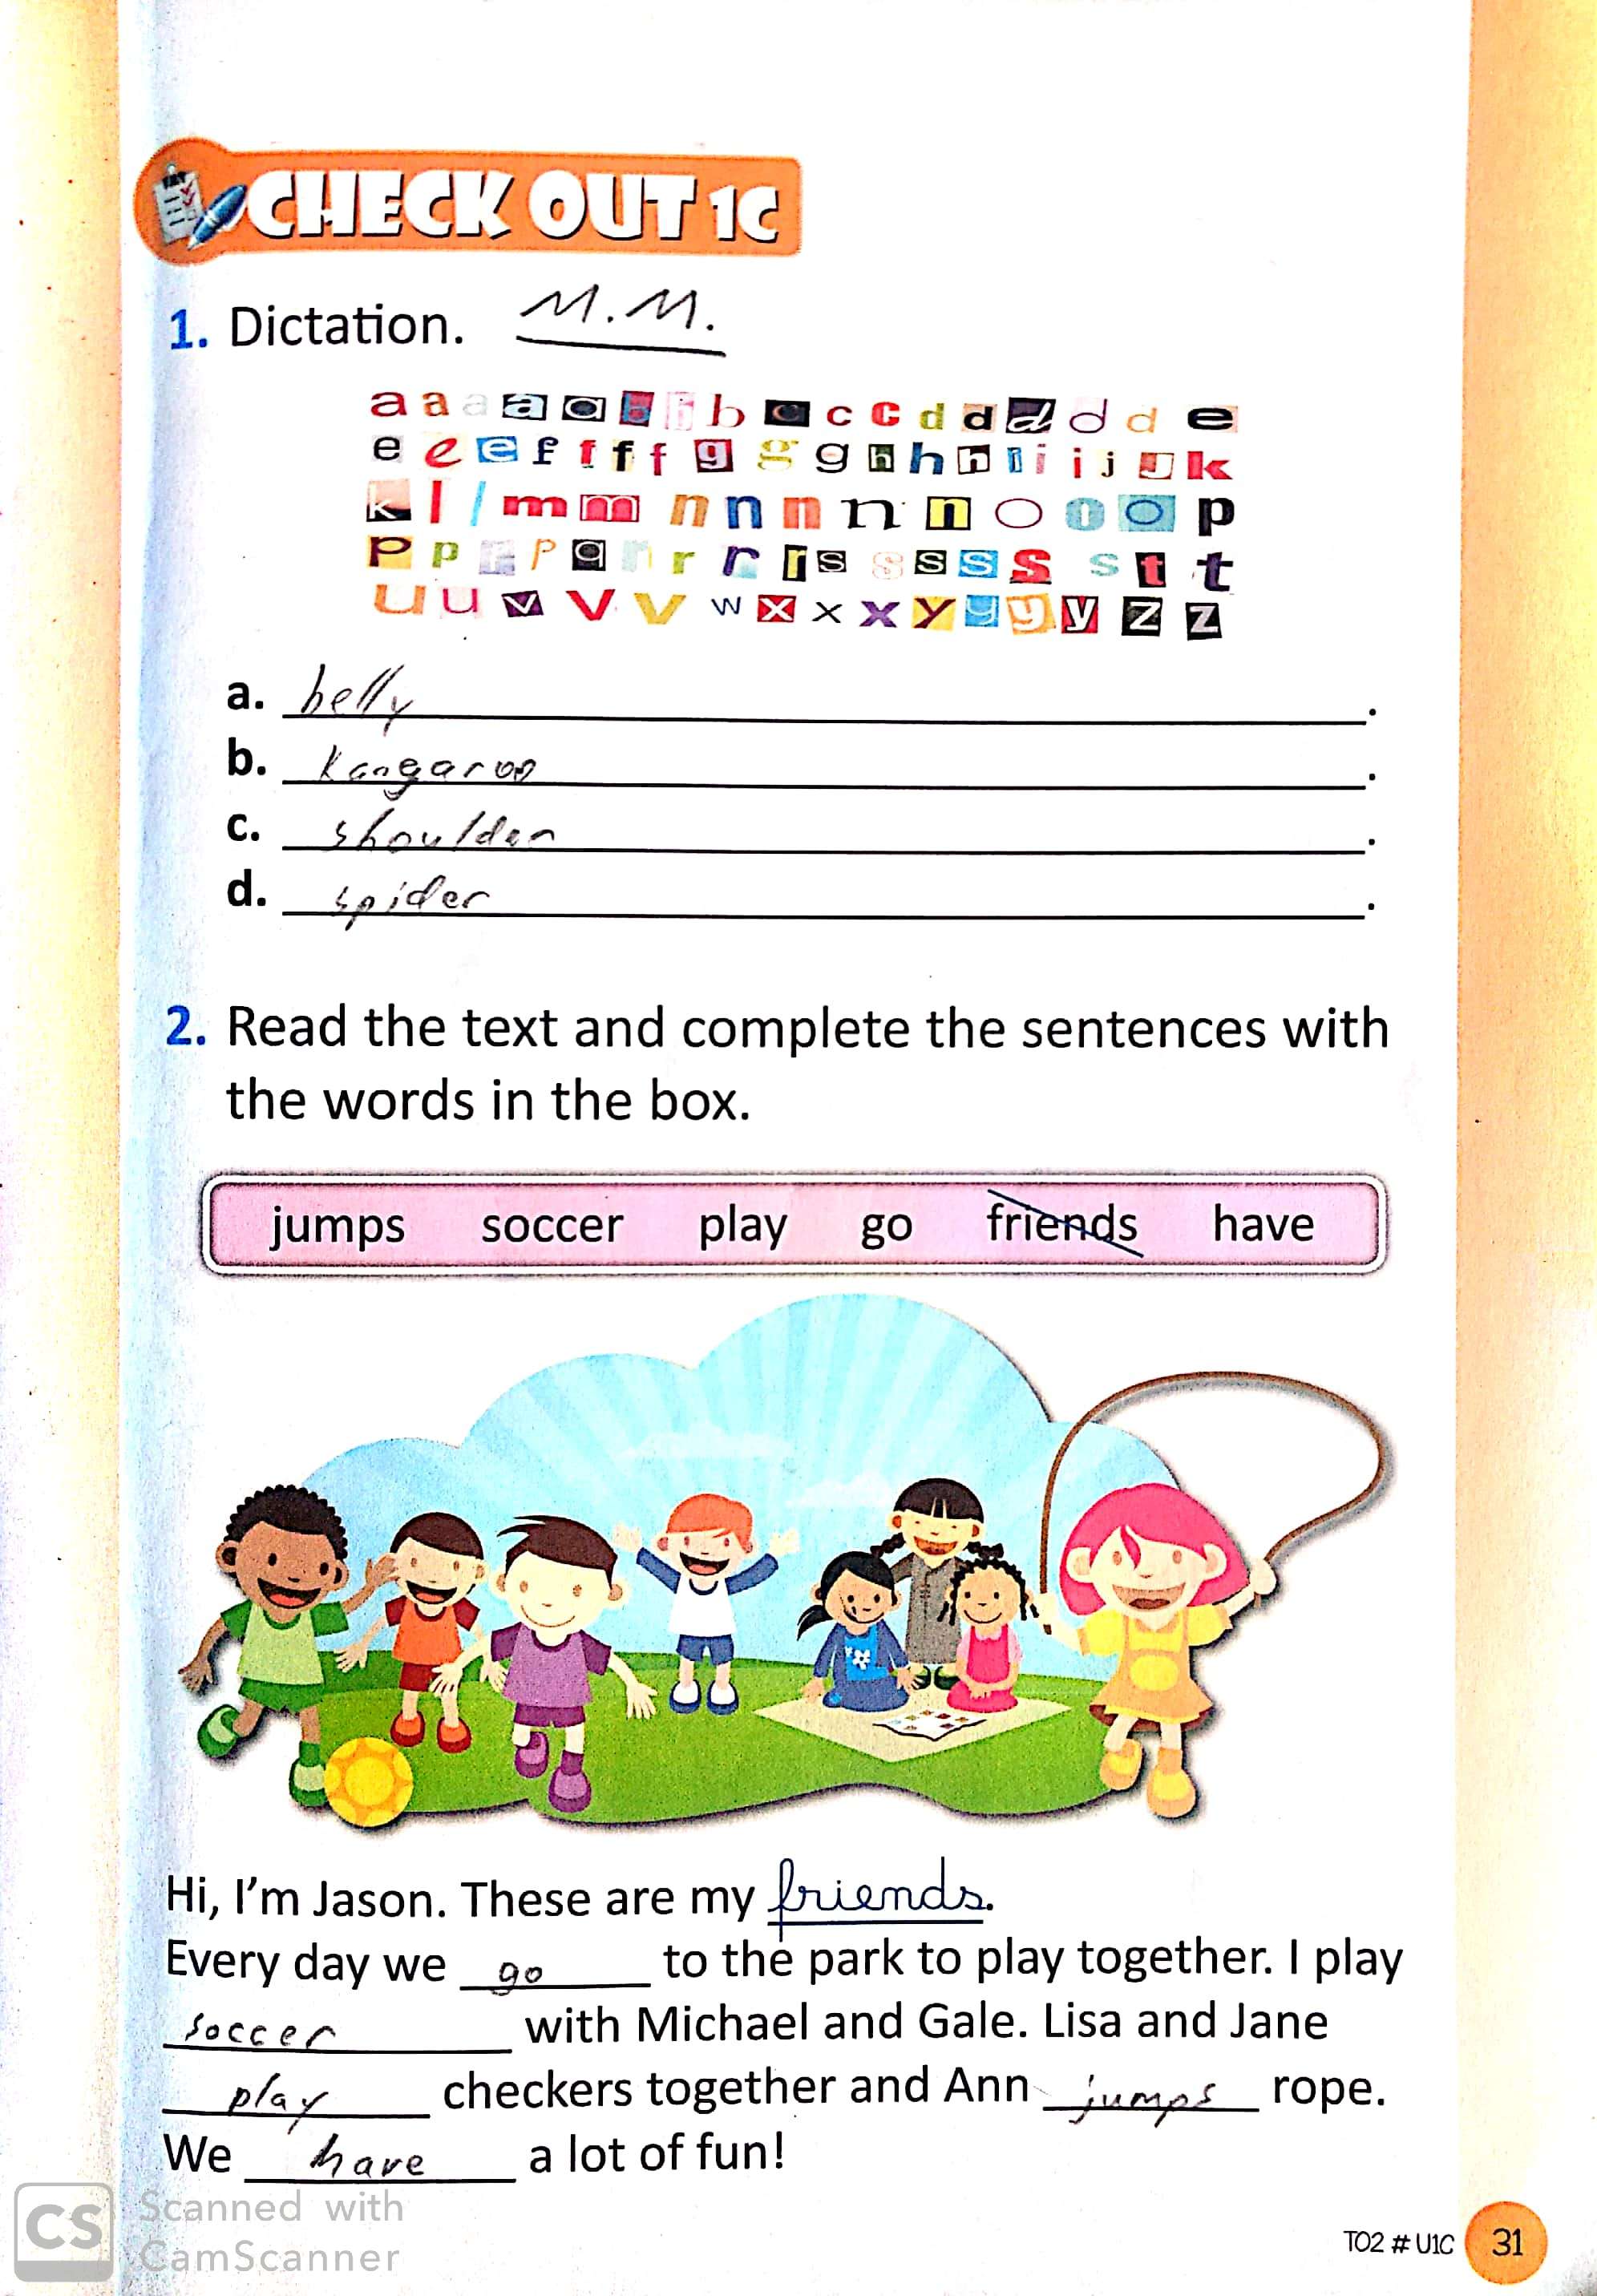 CHECK OUT 1C
1. Dictation. M.M.
a a a a a b b b c c c d d d d d e
e e e f f f f g g g h h h i i i j j k
k l l m m n n n n n o o o p
p p p p q r r r r s s s s s s t t
u u v v v w x x x y y y y z z
a. belly.
b. kangaroo.
c. shoulder.
d. spider.
2. Read the text and complete the sentences with
the words in the box.
jumps soccer play go friends have
Hi, I'm Jason. These are my friends.
Every day we go to the park to play together. I play
soccer with Michael and Gale. Lisa and Jane
play checkers together and Ann jumps rope.
We have a lot of fun!
CS Scanned with
CamScanner
TO2 # U1C 31